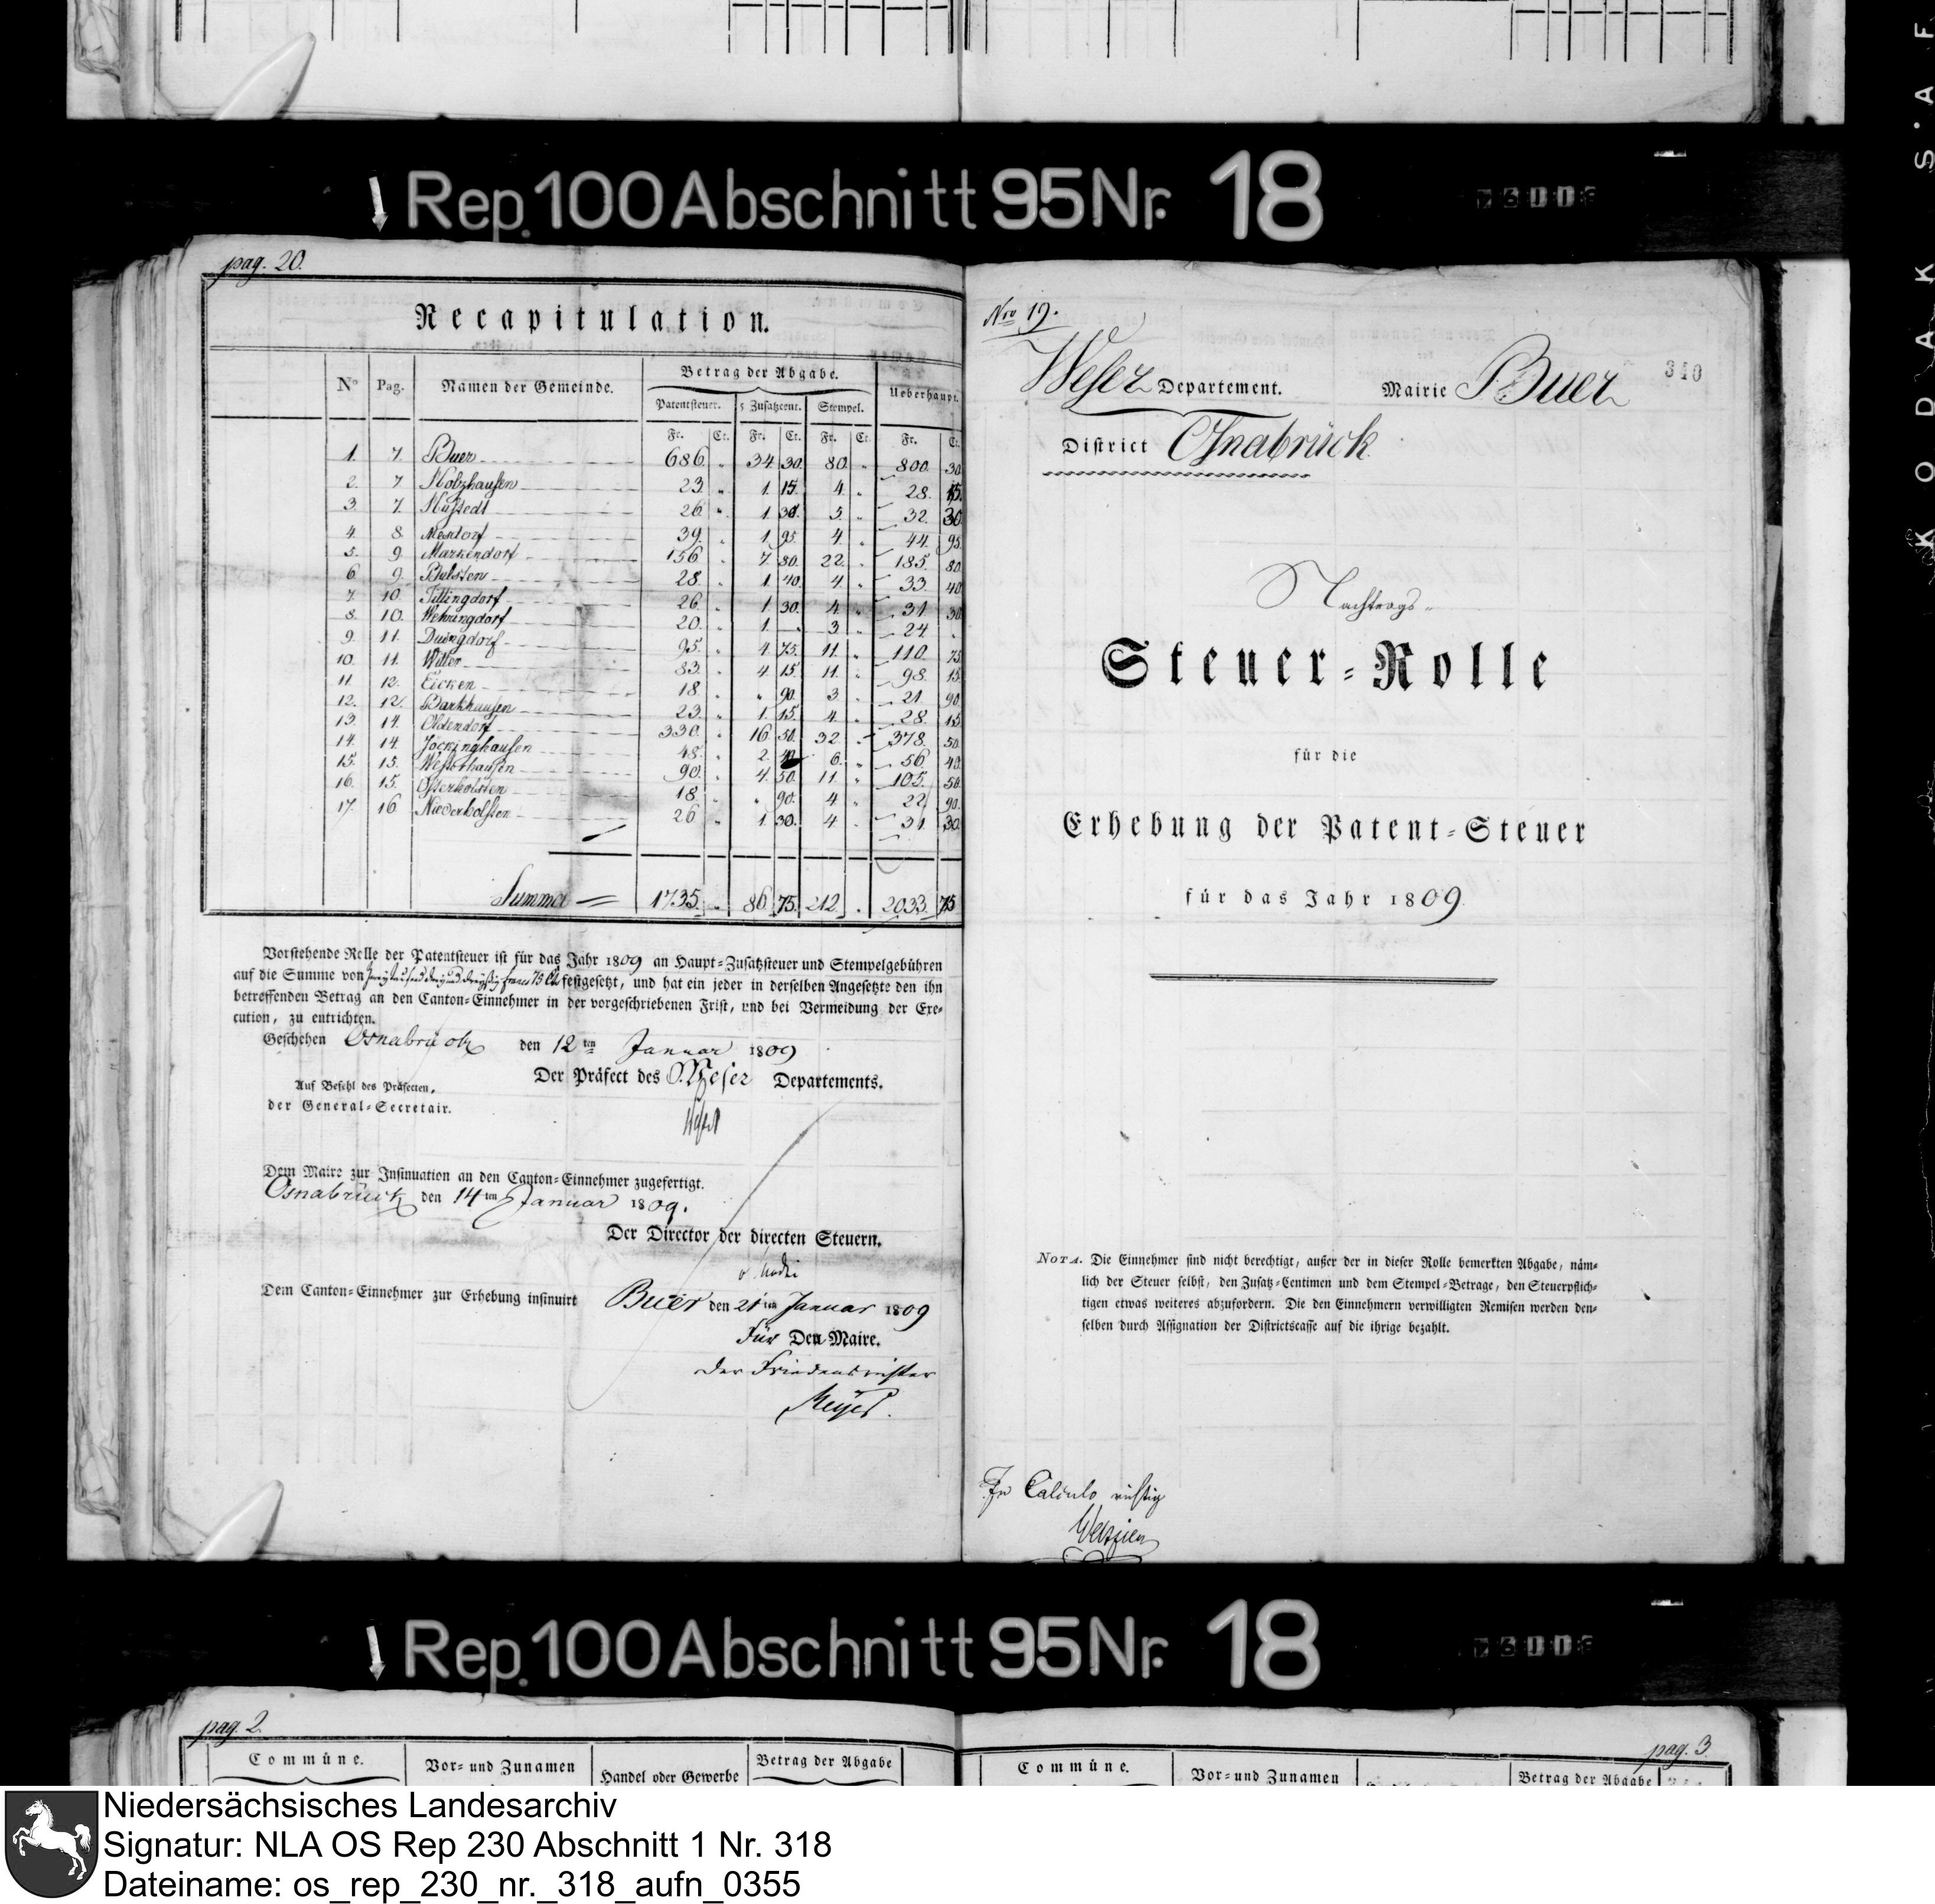 Rep. 100 Abschnitt 95 Nr. 18
pag. 20.
Recapitulation.
N° Pag. Namen der Gemeinde. Betrag der Abgabe. Ueberhaupt.
Patentsteuer. 5 Zusatzcent. Stempel.
Fr. Ct. Fr. Ct. Fr. Ct. Fr. Ct.
1. 7. Buer 686. " 34. 30. 80. " 800. 30.
2. 7 Holzhausen 23. " 1. 15. 4. " 28. 15.
3. 7. Hustedt 26 " 1. 30. 5. " 32. 30.
4. 8. Mesdorf 39. " 1. 95. 4. " 44. 95.
5. 9. Markendorf 156 " 7. 80. 22. " 185. 80.
6. 9. Bulsten 28. " 1. 40. 4. " 33. 40.
7. 10. Tittingdorf 26. " 1. 30. 4. " 31. 30.
8. 10. Wehringdorf 20. " 1. " 3. " 24. "
9. 11. Duingdorf 95. " 4. 75. 11. " 110. 75.
10. 11. Witter 83. " 4. 15. 11. " 98. 15.
11. 12. Eicken 18. " " 90. 3. " 21. 90.
12. 12. Barkhausen 23. " 1. 15. 4. " 28. 15.
13. 14. Oldendorf 330. " 16. 50. 32. " 378. 50.
14. 14. Jöckinghausen 48. " 2. 40. 6. " 56. 40.
15. 15. Westerhausen 90. " 4. 50. 11. " 105. 50.
16. 15. Osterholsten 18. " " 90. 4. " 22. 90.
17. 16. Niederholsten 26 " 1. 30. 4. " 31. 30.
Summa 1735. " 86. 75. 212. " 2033. 75
Vorstehende Rolle der Patentsteuer ist für das Jahr 1809 an Haupt-Zusatzsteuer und Stempelgebühren
auf die Summe von zweytausend dreyund dreyßig francs 75 Ct. festgesetzt, und hat ein jeder in derselben Angesetzte den ihn
betreffenden Betrag an den Canton-Einnehmer in der vorgeschriebenen Frist, und bei Vermeidung der Exe-
cution, zu entrichten.
Geschehen Osnabrück den 12ten Januar 1809
Der Präfect des Weser Departements.
Auf Befehl des Präfecten,
der General-Secretair.
Dem Maire zur Insinuation an den Canton-Einnehmer zugefertigt.
Osnabrück den 14ten Januar 1809.
Der Director der directen Steuern.
Dem Canton-Einnehmer zur Erhebung insinuirt Buer den 21ten Januar 1809
Für Den Maire.
der Friedensrichter
Meyer.
Nro 19.
Weser Departement. Mairie Buer
310
District Osnabrück
Nachtrags-
Steuer-Rolle
für die
Erhebung der Patent-Steuer
für das Jahr 1809.
NOTA. Die Einnehmer sind nicht berechtigt, außer der in dieser Rolle bemerkten Abgabe, näm-
lich der Steuer selbst, den Zusatz-Centimen und dem Stempel-Betrage, den Steuerpflich-
tigen etwas weiteres abzufordern. Die den Einnehmern verwilligten Remisen werden den-
selben durch Assignation der Districtscasse auf die ihrige bezahlt.
In Calculo richtig
Rep. 100 Abschnitt 95 Nr. 18
pag. 2.
Commüne. Vor- und Zunamen Handel oder Gewerbe Betrag der Abgabe
pag. 3.
Commüne. Vor- und Zunamen Betrag der Abgabe
KODAK S.A.F.
Niedersächsisches Landesarchiv
Signatur: NLA OS Rep 230 Abschnitt 1 Nr. 318
Dateiname: os_rep_230_nr._318_aufn_0355